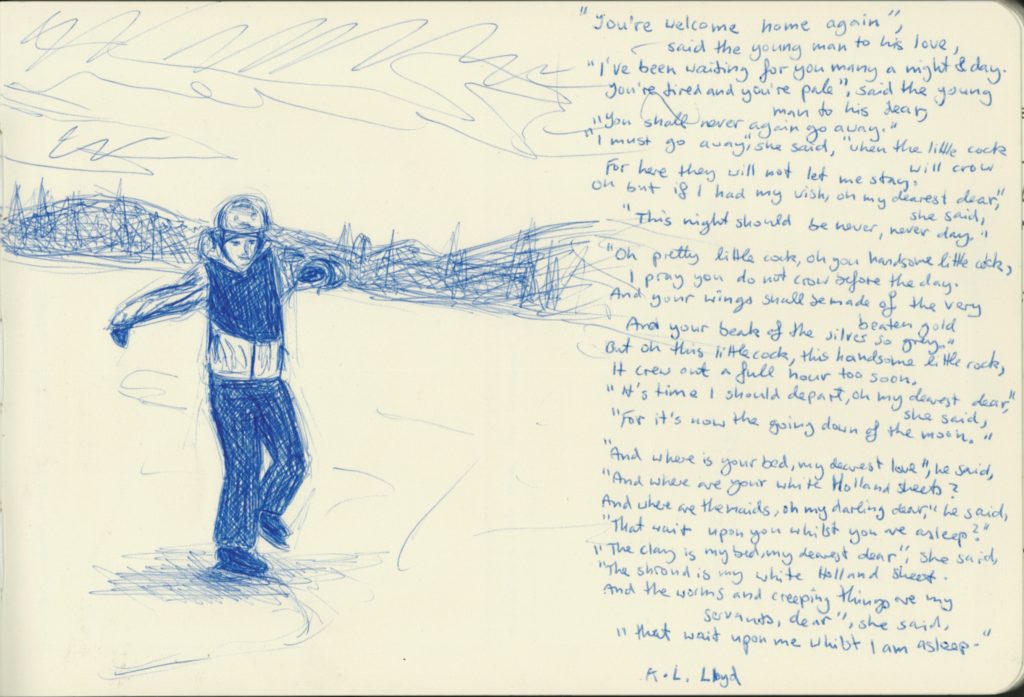 "You're welcome home again",
said the young man to his love,
"I've been waiting for you many a night & day.
You're tired and you're pale", said the young
man to his dear,
"You shall never again go away."
"I must go away", she said, "when the little cock
will crow
For here they will not let me stay.
Oh but if I had my wish, oh my dearest dear",
she said,
"This night should be never, never day."
"Oh pretty little cock, oh you handsome little cock,
I pray you do not crow before the day.
And your wings shall be made of the very
beaten gold
And your beak of the silver so grey."
But oh this little cock, this handsome little cock,
It crew out a full hour too soon.
"It's time I should depart, oh my dearest dear",
she said,
"For it's now the going down of the moon."
"And where is your bed, my dearest love", he said,
"And where are your white Holland sheets?
And where are the maids, oh my darling dear" he said,
"That wait upon you whilst you are asleep?"
"The clay is my bed, my dearest dear", she said,
"The shroud is my white Holland sheet.
And the worms and creeping things are my
servants, dear", she said,
"that wait upon me whilst I am asleep."
K.L. Lloyd